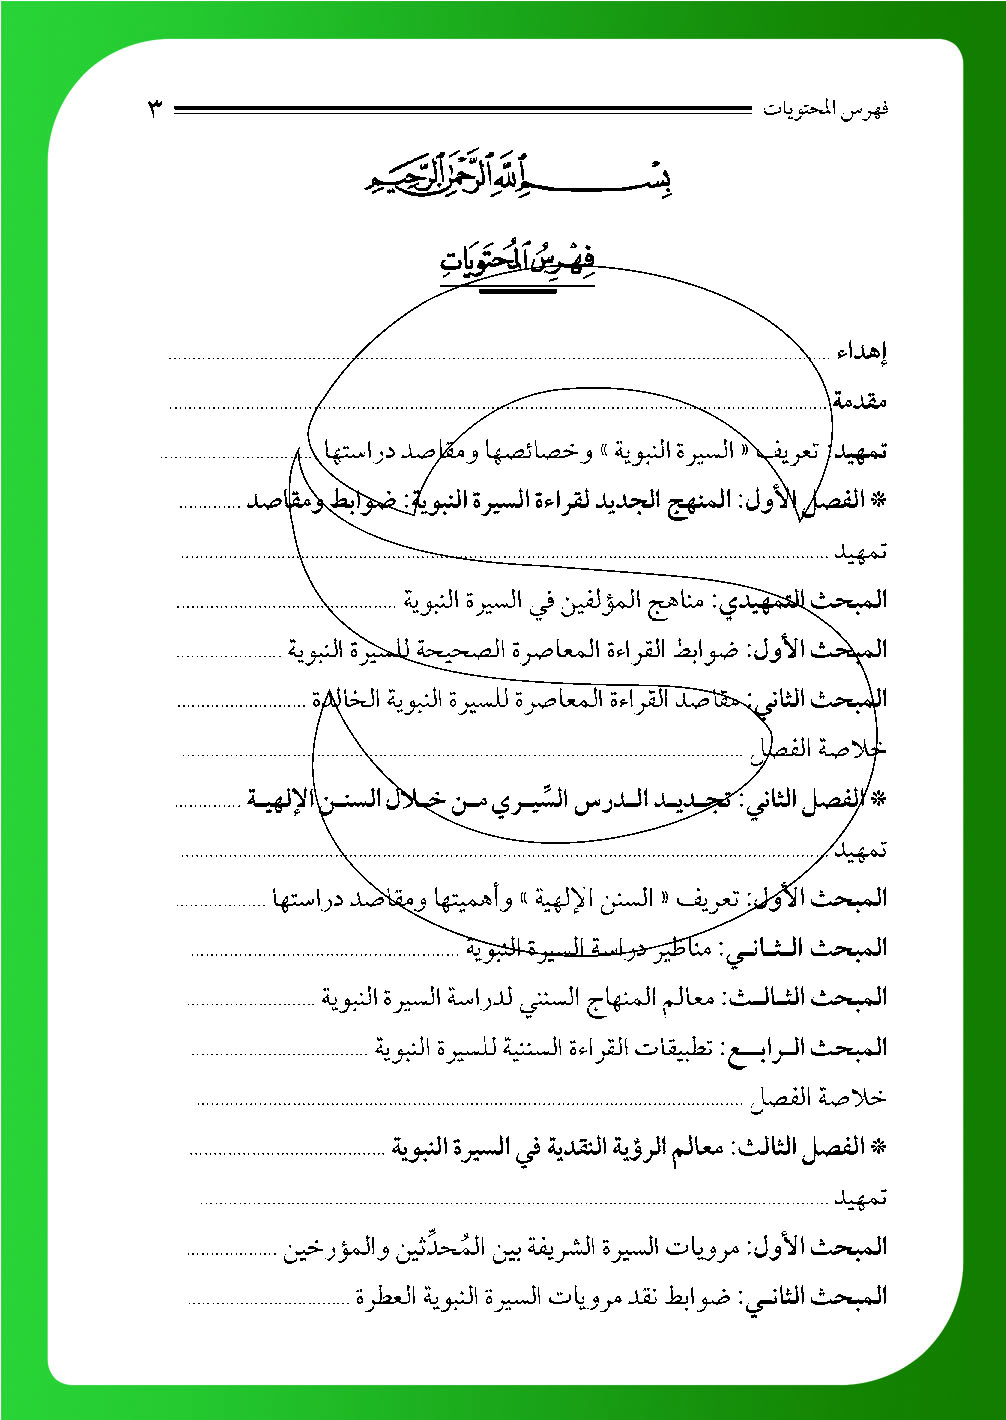 فهرس المحتويات ٣
بِسْمِ ٱللَّهِ ٱلرَّحْمَٰنِ ٱلرَّحِيمِ
فِهْرِسُ ٱلْمُحْتَوَيَاتِ
إهداء
مقدمة
تمهيد: تعريف « السيرة النبوية » وخصائصها ومقاصد دراستها
* الفصل الأول: المنهج الجديد لقراءة السيرة النبوية: ضوابط ومقاصد
تمهيد
المبحث التمهيدي: مناهج المؤلفين في السيرة النبوية
المبحث الأول: ضوابط القراءة المعاصرة الصحيحة للسيرة النبوية
المبحث الثاني: مقاصد القراءة المعاصرة للسيرة النبوية الخالدة
خلاصة الفصل
* الفصل الثاني: تجـديـد الـدرس السِّيـري مـن خـلال السنـن الإلهيـة
تمهيد
المبحث الأول: تعريف « السنن الإلهية » وأهميتها ومقاصد دراستها
المبحث الـثـانـي: مناظير دراسة السيرة النبوية
المبحث الثـالـث: معالم المنهاج السنني لدراسة السيرة النبوية
المبحث الـرابـــع: تطبيقات القراءة السننية للسيرة النبوية
خلاصة الفصل
* الفصل الثالث: معالم الرؤية النقدية في السيرة النبوية
تمهيد
المبحث الأول: مرويات السيرة الشريفة بين المُحدِّثين والمؤرخين
المبحث الثانـي: ضوابط نقد مرويات السيرة النبوية العطرة